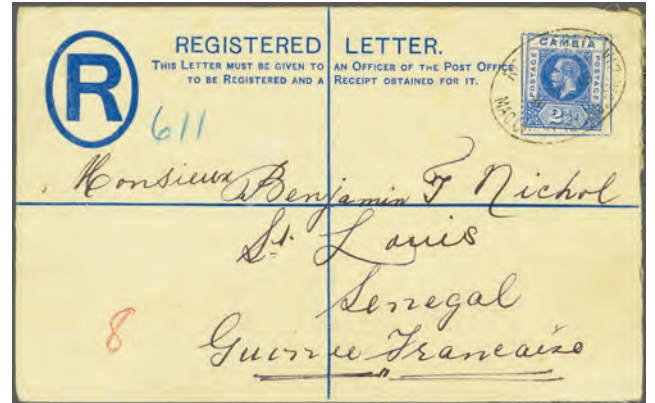 R
REGISTERED LETTER.
THIS LETTER MUST BE GIVEN TO AN OFFICER OF THE POST OFFICE
TO BE REGISTERED AND A RECEIPT OBTAINED FOR IT.
GAMBIA
POSTAGE POSTAGE
2½d
611
Monsieur Benjamin F Nichol
St. Louis
Senegal
8
Guinnee Francaise